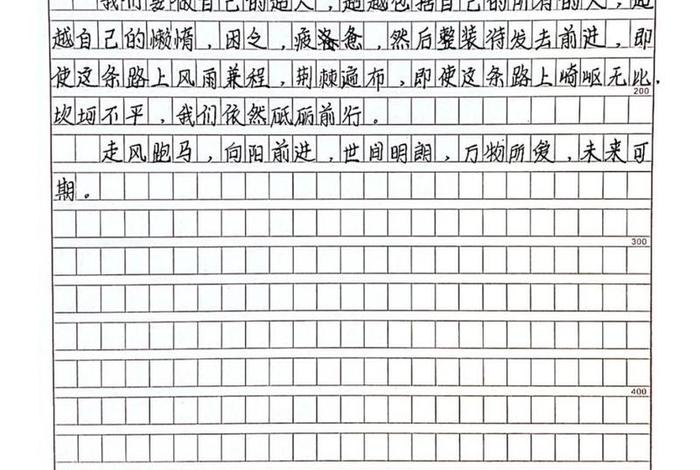 我们要做自己的超人，超越包括自己的所有的人，超
越自己的懒惰，困乏，疲惫，然后整装待发去前进，即
使这条路上风雨兼程，荆棘遍布，即使这条路上崎岖无比，
200
坎坷不平，我们依然砥砺前行。
走风跑马，向阳前进，世间明朗，万物所爱，未来可
期。
300
400